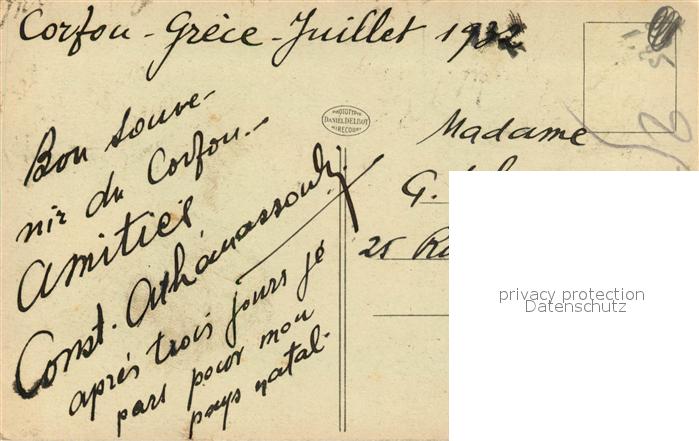 Corfou - Grèce - Juillet 1932
Bon souve-
nir du Corfou.-
Amitiés
Const. Athanassoudy
après trois jours je
pars pour mon
pays natal.
PHOTOTYPIE
DANIEL DELBOY
MIRECOURT
Madame
G.
25 Ru
privacy protection
Datenschutz